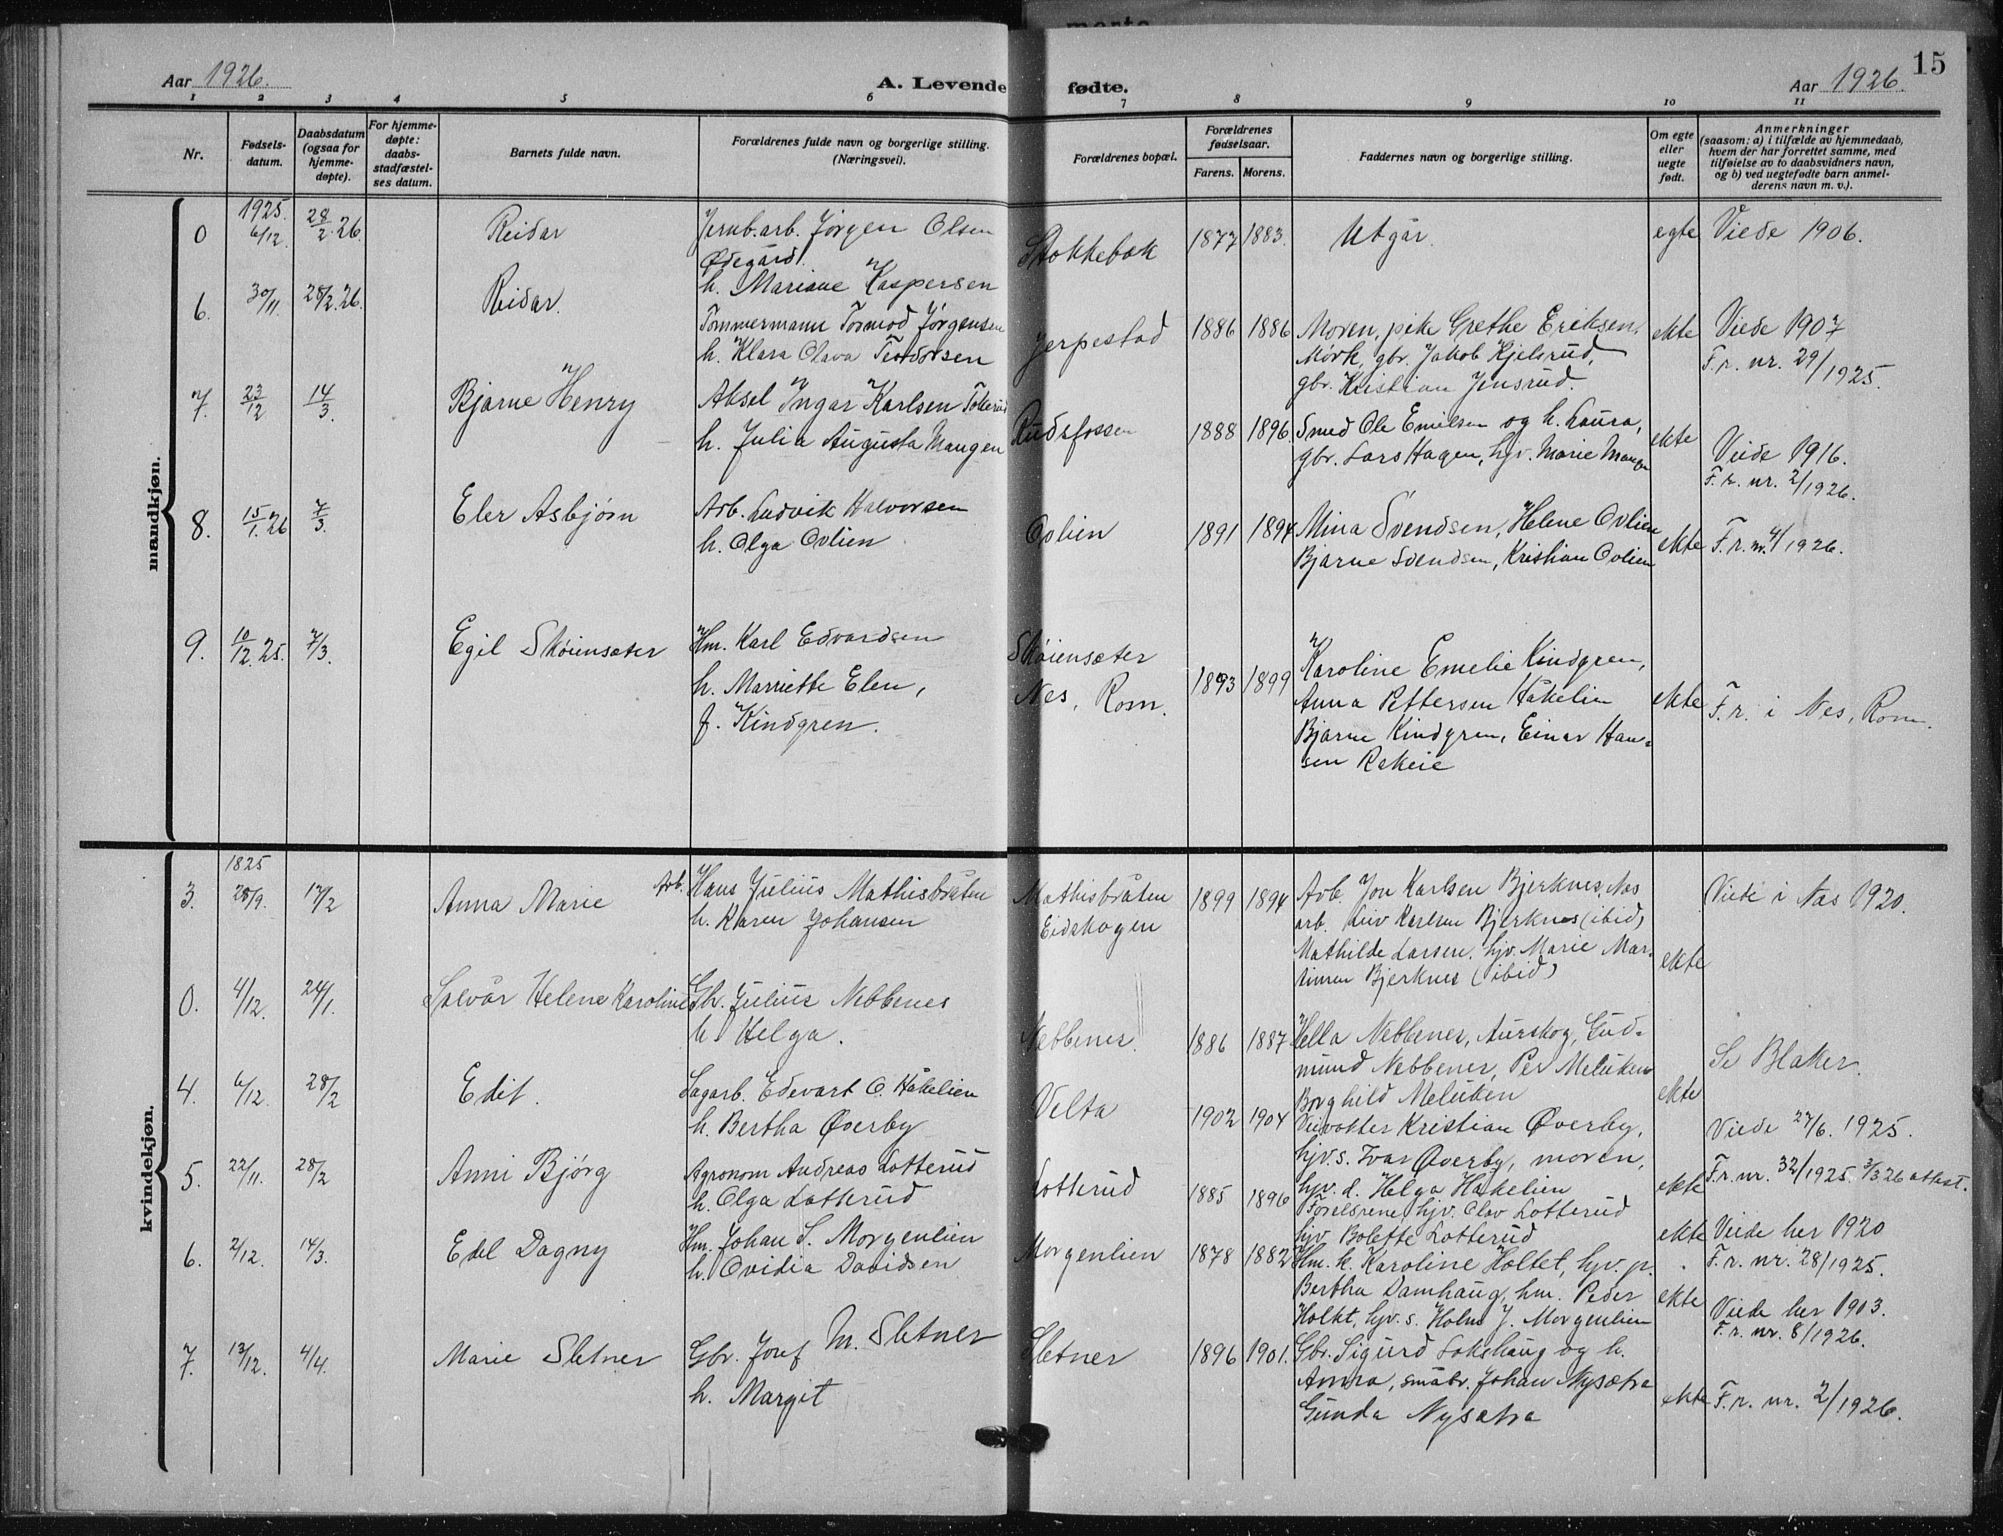 Aar 1926.
A. Levende fødte.
Aar 1926.
15
1 2 3 4 5 6 7 8 9 10 11
Nr.
Fødsels-
datum.
Daabsdatum
(ogsaa for
hjemme-
døpte).
For hjemme-
døpte:
daabs-
stadfæstel-
ses datum.
Barnets fulde navn.
Forældrenes fulde navn og borgerlige stilling.
(Næringsvei).
Forældrenes bopæl.
Forældrenes
fødselsaar.
Farens. Morens.
Faddernes navn og borgerlige stilling.
Om egte
eller
uegte
født.
Anmerkninger
(saasom: a) i tilfælde av hjemmedaab,
hvem der har forrettet samme, med
tilføielse av to daabsvidners navn,
og b) ved uegtefødte barn anmel-
derens navn m. v.).
mandkjøn.
0 1925. 6/12. 28/2.26 Reidar
Jernb.arb. Jørgen Olsen
Ødegård.
h. Mariane Kaspersen
Stokkebæk 1877 1883. Utgår. egte Viede 1906.
6. 30/11 28/2.26 Reidar.
Tømmermann Tormod Jørgensen
h. Klara Olava Teodorsen
Jerpestad 1886 1886
Moren, pike Grethe Eriksen,
Mørk, gbr. Jakob Kjelsrud,
gbr. Kristian Jensrud.
ekte
Viede 1907
F.r. nr. 29/1925.
7. 23/12 14/3 Bjarne Henry
Aksel Ingar Karlsen Tollerud
h. Julia Augusta Mangen
Rudsfossen 1888 1896.
Smed Ole Emilsen og h. Laura,
gbr. Lars Hagen, hjv. Marie Mangen
ekte
Viede 1916.
F.r. nr. 2/1926.
8. 15/1.26 7/3. Eler Asbjørn
Arb. Ludvik Halvorsen
h. Olga Ovlien
Ovlien 1891 1894
Mina Svendsen, Helene Ovlien
Bjarne Svendsen, Kristian Ovlien
ekte F.r. nr. 4/1926.
9. 10/12.25. 7/3. Egil Skøiensæter
Hm. Karl Edvardsen
h. Marriette Elen,
f. Kindgren.
Skøiensæter
Nes, Rom.
1893 1899
Karoline Emelie Kindgren,
Anna Pettersen Håkelien
Bjarne Kindgren, Einar Han-
sen Rakeie
ekte F.r. i Nes, Rom.
kvindekjøn.
1825
3. 28/9. 13/2 Anna Marie
Arb. Hans Julius Mathisbråten
h. Karen Johansen
Mathisbråten
Eidskogen
1899 1894
Arb. Jon Karlsen Bjerknes, Nes
arb. Liv Karlsen Bjerknes (ibid)
Mathilde Larsen, hjv. Marie Mar-
tinsen Bjerknes (ibid)
ekte Viede i Nes 1920.
0. 4/12. 24/1. Solvår Helene Karoline
Gbr. Julius Nebbenes
h. Helga.
Nebbenes. 1886 1887
Hella Nebbenes, Aurskog, Gud-
mund Nebbenes, Per Melviken
Borghild Melviken
ekte Se Blaker.
4. 6/12. 28/2 Edit.
Sagarb. Edevart O. Håkelien
h. Bertha Øverby
Velta 1902 1904
Veivokter Kristian Øverby,
hjv.s. Ivar Øverby, moren,
hjv. d. Helga Håkelien
ekte
Viede 27/6. 1925.
F.r. nr. 32/1925. 3/3 26 attest.
5. 22/11. 28/2 Anni Bjørg
Agronom Andreas Lotterud
h. Olga Lotterud
Lotterud 1885 1896
Forelsrene, hjv. Olav Lotterud
hjv. Bolette Lotterud
ekte
Viede her 1920
F.r. nr. 28/1925.
6. 2/12. 14/3. Edel Dagny
Hm. Johan S. Morgenlien
h. Ovidia Davidsen
Morgenlien 1878 1882
Hm. k. Karoline Holtet, hjv. p.
Bertha Damhaug, hm. Peder
Holtet, hjv. s. Holm J. Morgenlien
ekte
Viede her 1903.
F.r. nr. 8/1926.
7. 13/12. 4/4. Marie Sletner
Gbr. Josef M. Sletner
h. Margit
Sletner 1896 1901.
Gbr. Sigurd Lokshaug og h.
Anna, småbr. Johan Nysætra
Gunda Nysætra
ekte F.r. nr. 2/1926.